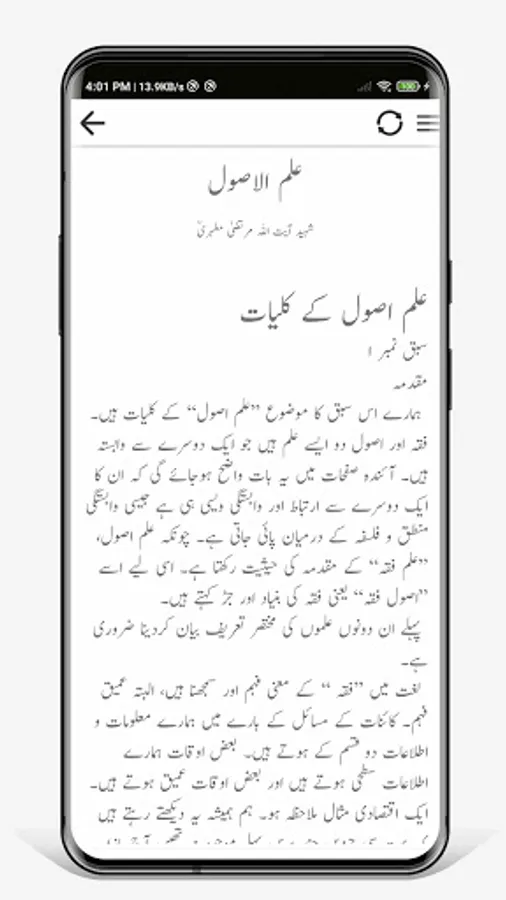 4:01 PM | 13.9KB/s
علم الاصول
شہید آیت اللہ مرتضیٰ مطہریؒ
علم اصول کے کلیات
سبق نمبر ۱
مقدمہ
ہمارے اس سبق کا موضوع ”علم اصول“ کے کلیات ہیں۔
فقہ اور اصول دو ایسے علم ہیں جو ایک دوسرے سے وابستہ
ہیں۔ آئندہ صفحات میں یہ بات واضح ہوجائے گی کہ ان کا
ایک دوسرے سے ارتباط اور وابستگی ویسی ہی ہے جیسی وابستگی
منطق و فلسفہ کے درمیان پائی جاتی ہے۔ چونکہ علم اصول،
”علم فقہ“ کے مقدمہ کی حیثیت رکھتا ہے۔ اسی لیے اسے
”اصول فقہ“ یعنی فقہ کی بنیاد اور جڑ کہتے ہیں۔
پہلے ان دونوں علموں کی مختصر تعریف بیان کردینا ضروری
ہے۔
لغت میں ”فقہ “ کے معنی فہم اور سمجھنا ہیں، البتہ عمیق
فہم۔ کائنات کے مسائل کے بارے میں ہمارے معلومات و
اطلاعات دو قسم کے ہوتے ہیں۔ بعض اوقات ہمارے
اطلاعات سطحی ہوتے ہیں اور بعض اوقات عمیق ہوتے ہیں۔
ایک اقتصادی مثال ملاحظہ ہو۔ ہم ہمیشہ یہ دیکھتے رہتے ہیں